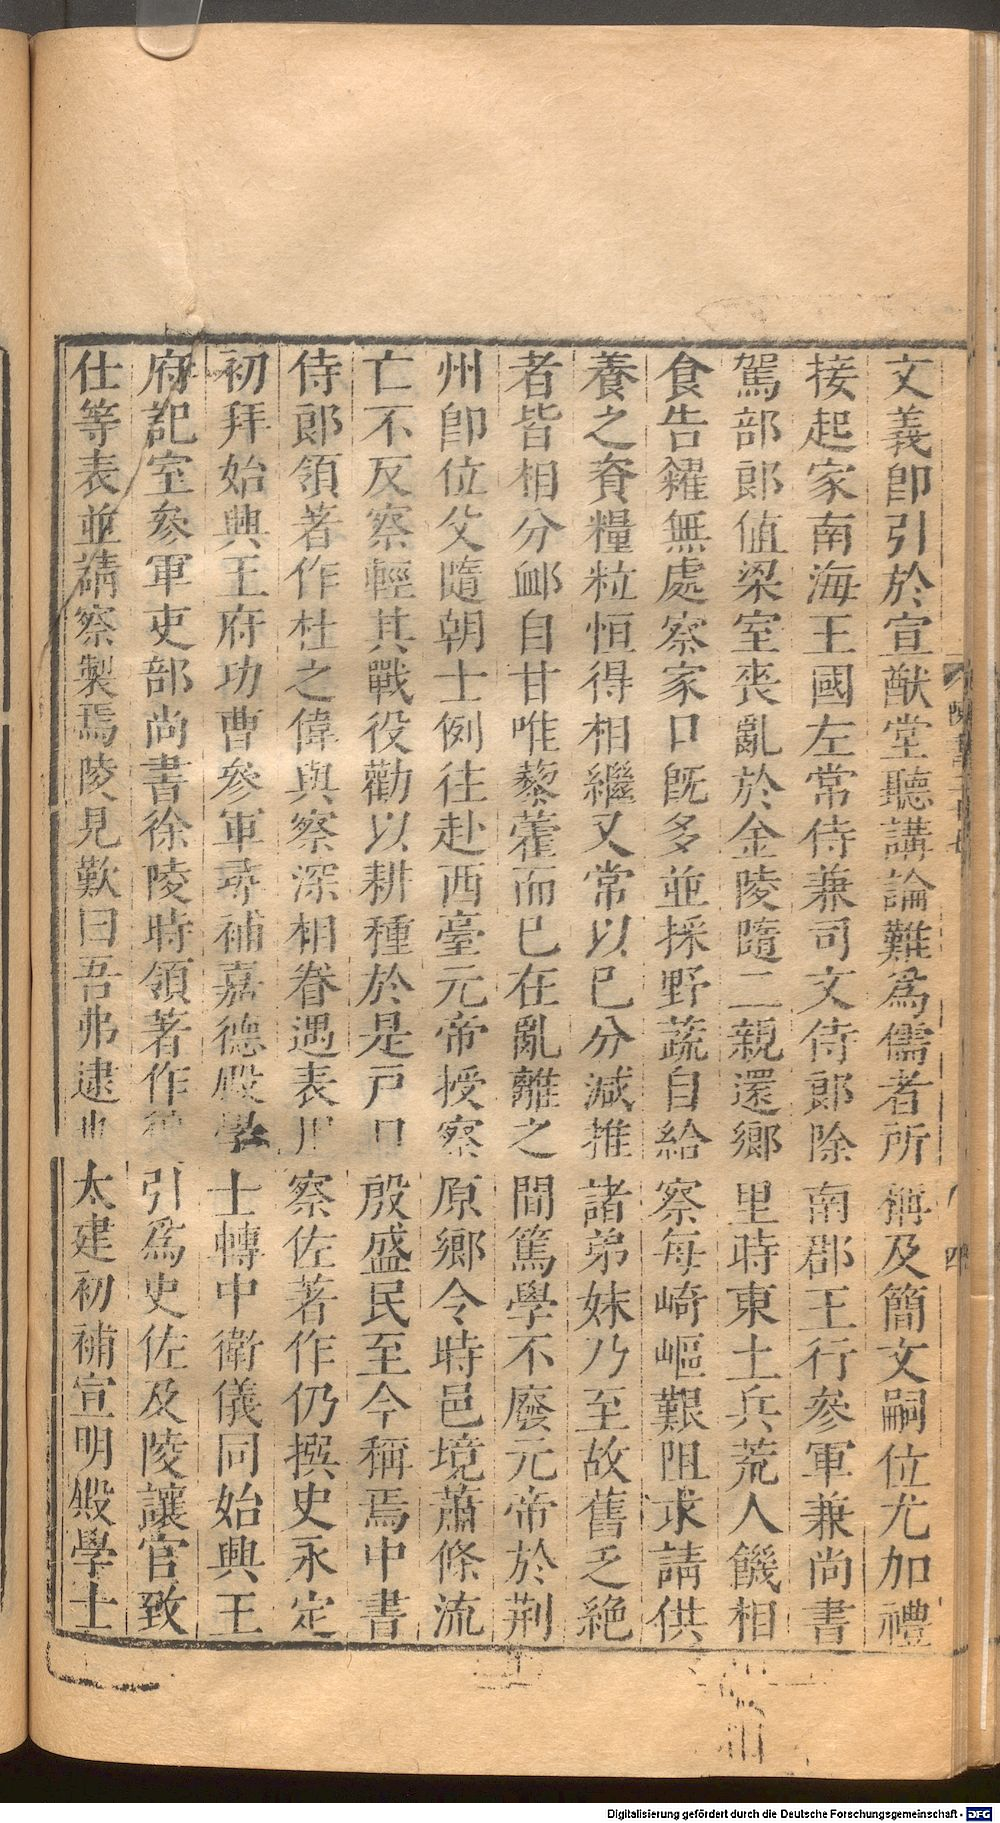 文義即引於宣猷堂聽講論難為儒者所稱及簡文嗣位尤加禮
接起家南海王國左常侍兼司文侍郎除南郡王行參軍兼尚書
駕部郎值梁室喪亂於金陵隨二親還鄉里時東土兵荒人饑相
食告糴無處察家口既多並採野蔬自給察每崎嶇艱阻求請供
養之資糧粒恒得相繼又常以已分減推諸弟妹乃至故舊乏絶
者皆相分卹自甘唯藜藿而已在亂離之間篤學不廢元帝於荆
州即位父隨朝士例往赴西臺元帝授察原鄉令時邑境蕭條流
亡不反察輕其賦役勸以耕種於是戸口殷盛民至今稱焉中書
侍郎領著作杜之偉與察深相眷遇表用察佐著作仍撰史永定
初拜始興王府功曹參軍尋補嘉德殿學士轉中衛儀同始興王
府記室參軍吏部尚書徐陵時領著作復引為史佐及陵讓官致
仕等表並請察製焉陵見歎曰吾弗逮也太建初補宣明殿學士
四
Digitalisierung gefördert durch die Deutsche Forschungsgemeinschaft - DFG